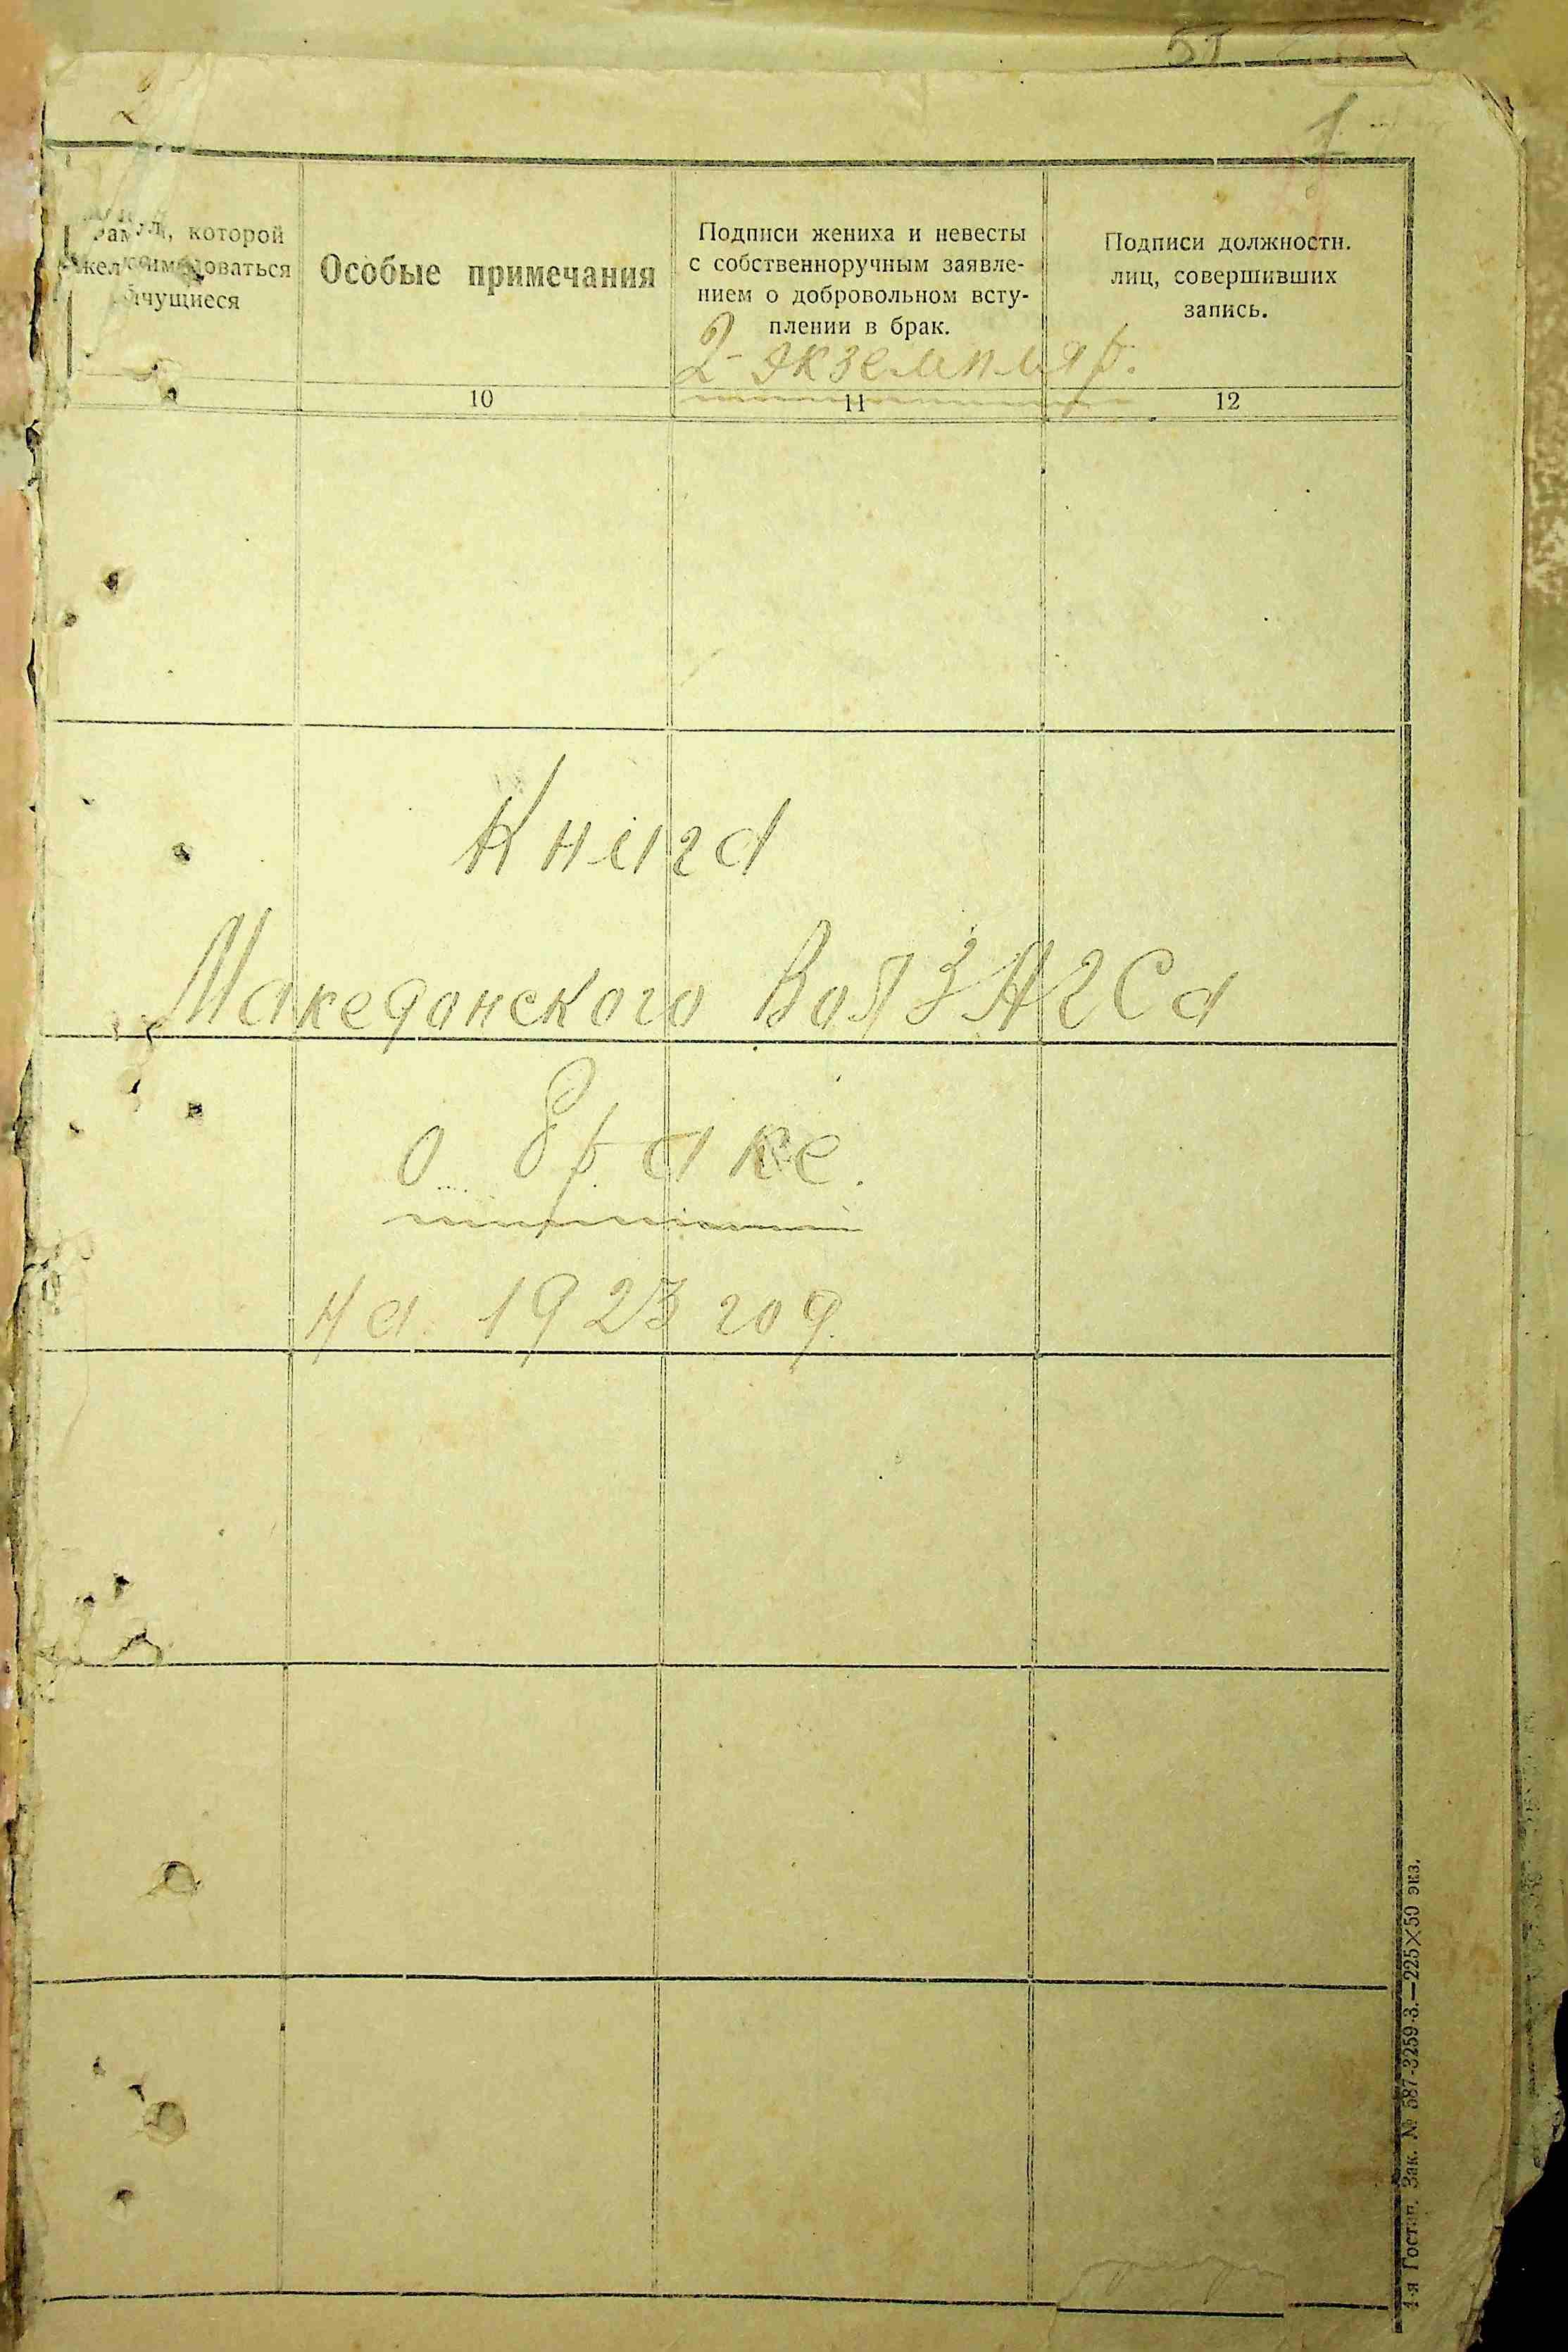 51
2
1
которой
чущиеся
Особые примечания
Подписи жениха и невесты
с собственноручным заявле-
нием о добровольном всту-
плении в брак.
Подписи должностн.
лиц, совершивших
запись.
2-экземпляр.
10
11
12
Книга
Македонского ВолЗАГСа
о браке.
на 1923 год.
4-я Гостип. Зак. № 587-3259-3.—225×50 экз.